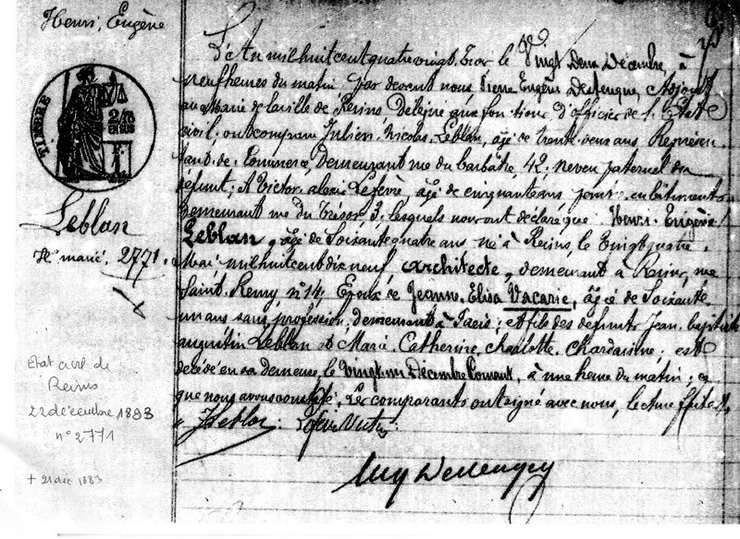 Henri, Eugène
TIMBRE
Leblan
N. marié, 2771.
Etat civil de
Reims
22 décembre 1883
n° 2771
+ 21 déc 1883
L'An mil huit cent quatre vingt Trois le Vingt Deux Décembre à
neuf heures du matin par devant nous Pierre Eugène Adjoint
au Maire de la ville de Reims Délégué aux fonctions d'officier de l'Etat
civil, ont comparu Julien, Nicolas, Leblan, âgé de trente deux ans, Représen
tant de Commerce, Demeurant rue du barbâtre, 42, neveu paternel du
défunt; & Victor Lefèvre âgé de cinquante ans, en bâtiments
Demeurant rue du Trésor, 3, lesquels nous ont déclaré que Henri Eugène
Leblan, âgé de Soixante quatre ans né à Reims, le Vingt quatre
Mai mil huit cent dix neuf, architecte, demeurant à Reims, rue
Saint Remy n° 14, Epoux de Jeanne, Elisa Vacarie, âgée de Soixante
un ans sans profession, demeurant à Paris; et fils des défunts Jean baptiste
augustin Leblan & Marie Catherine, charlotte, est
décédé en sa demeure, le Vingt un Décembre Courant, à une heure du matin; ce
que nous avons constaté; Les comparants ont signé avec nous, lecture faite
J Leblan Lefèvre Victor